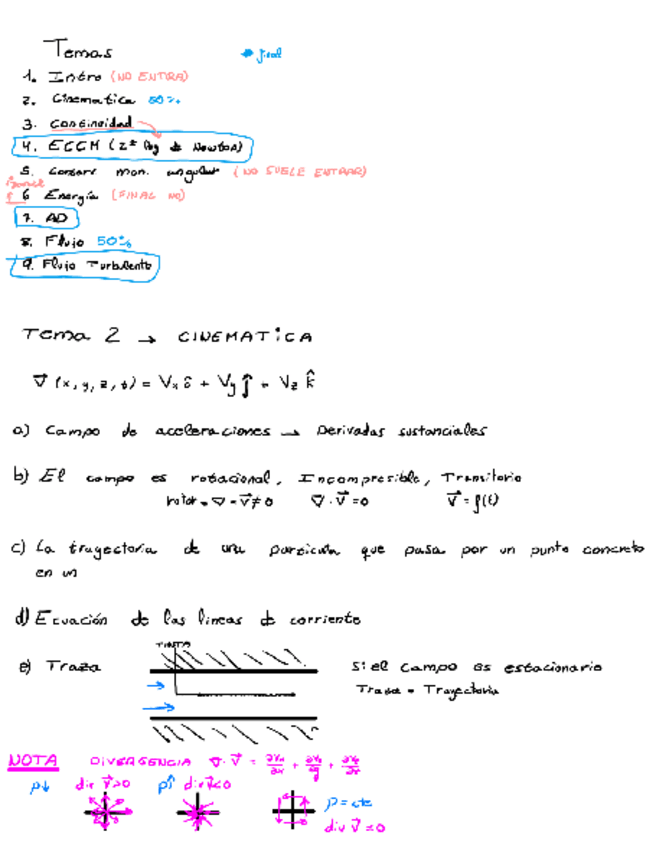 Temas
* final
1. Intro (NO ENTRA)
2. Cinematica 50%
3. Continuidad
4. ECCM (2ª ley de Newton)
5. Conserv mom. angular (NO SUELE ENTRAR)
6 Energía (FINAL NO)
7. AD
8. Flujo 50%
9. Flujo Turbulento
Tema 2 → CINEMATICA
V⃗ (x, y, z, t) = Vx î + Vy ĵ + Vz k̂
a) Campo de aceleraciones → Derivadas sustanciales
b) El campo es rotacional, Incompresible, Transitorio
rotor = ∇ × V⃗ ≠ 0 ∇ · V⃗ = 0 V⃗ = f(t)
c) La trayectoria de una particula que pasa por un punto concreto
en un
d) Ecuación de las lineas de corriente
TINTA
e) Traza
Si el campo es estacionario
Traza = Trayectoria
NOTA DIVERGENCIA ∇ · V⃗ = ∂Vx/∂x + ∂Vy/∂y + ∂Vz/∂z
ρ↓ div V⃗>0 ρ↑ div V⃗<0
ρ = cte
div V⃗ = 0